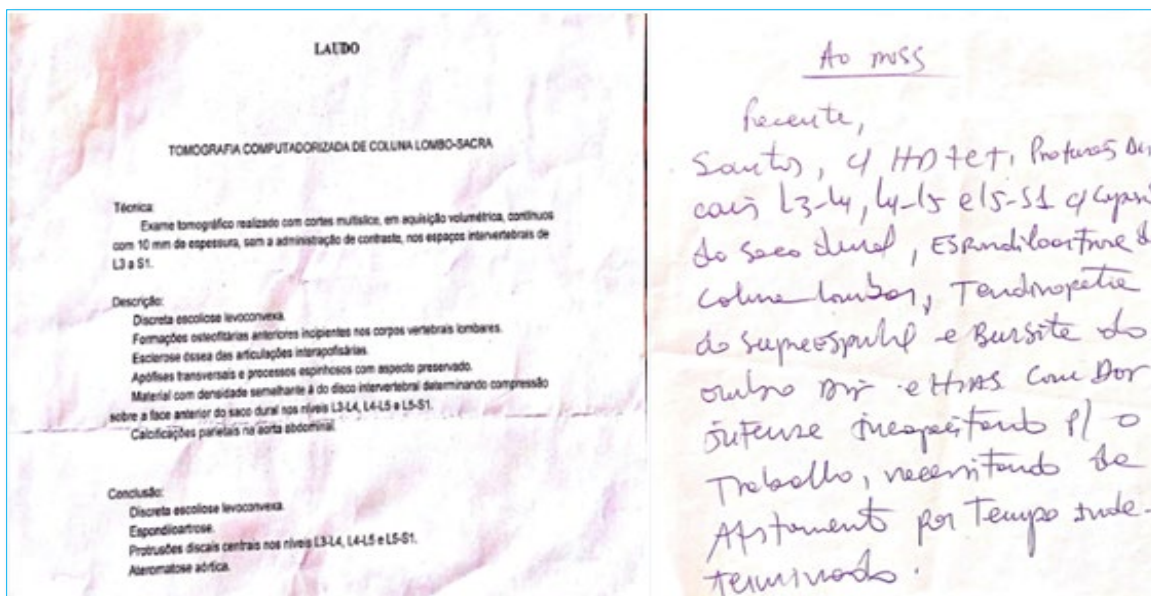 LAUDO
TOMOGRAFIA COMPUTADORIZADA DE COLUNA LOMBO-SACRA
Técnica:
Exame tomográfico realizado com cortes multislice, em aquisição volumétrica, contínuos
com 10 mm de espessura, sem a administração de contraste, nos espaços intervertebrais de
L3 a S1.
Descrição:
Discreta escoliose levoconvexa.
Formações osteofitárias anteriores incipientes nos corpos vertebrais lombares.
Esclerose óssea das articulações interapofisárias.
Apófises transversais e processos espinhosos com aspecto preservado.
Material com densidade semelhante à do disco intervertebral determinando compressão
sobre a face anterior do saco dural nos níveis L3-L4, L4-L5 e L5-S1.
Calcificações parietais na aorta abdominal.
Conclusão:
Discreta escoliose levoconvexa.
Espondiloartrose.
Protrusões discais centrais nos níveis L3-L4, L4-L5 e L5-S1.
Ateromatose aórtica.
Ao
Santos, c/
cais L3-L4, L4-L5 e L5-S1 c/
do saco dural, Espondiloartrose
coluna lombar, Tendinopatia
do supraespinhal e Bursite do
ombro Dir e HAS com Dor
intensa incapacitando p/ o
Trabalho, necessitando de
Afastamento por Tempo inde-
terminado.